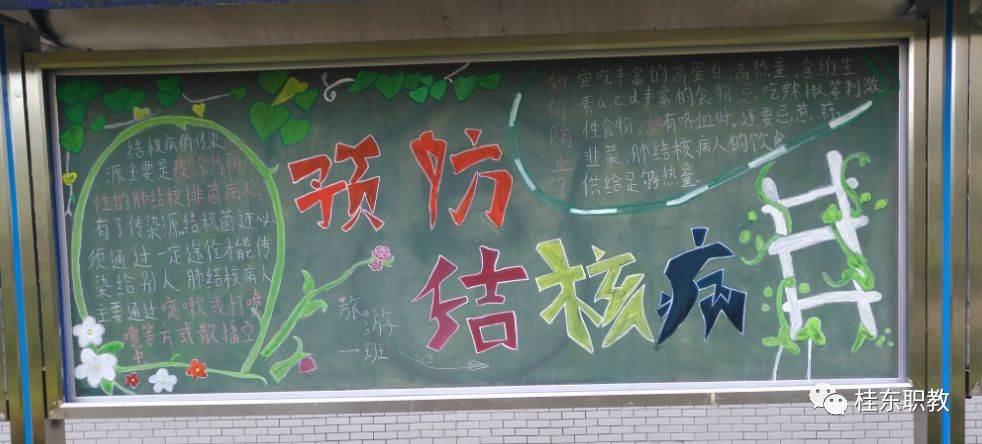 结核病的传染
源主要是痰涂片阳
性的肺结核排菌病人
有了传染源,结核菌还必
须通过一定途径才能传
染给别人,肺结核病人
主要通过咳嗽或打喷
嚏等方式散播空
中
预防
结核病
旅游
一班
如何防止?
宜吃丰富的高蛋白,高热量,含维生
素a.c.d丰富的食物,忌吃辣椒等刺激
性食物,如有咯血时,还要忌葱、蒜
韭菜,肺结核病人的饮食
供给足够热量.
桂东职教